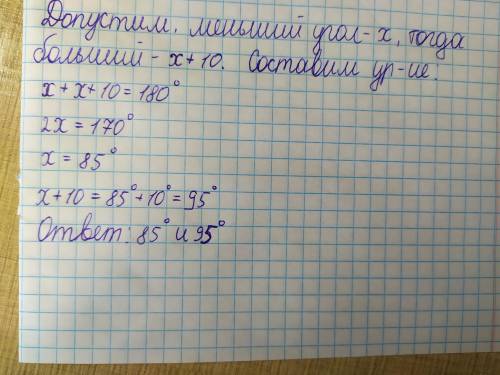 Допустим, меньший угол - x, тогда
больший - x + 10. Составим ур-ие:
x + x + 10 = 180°
2x = 170°
x = 85°
x + 10 = 85° + 10° = 95°
Ответ: 85° и 95°